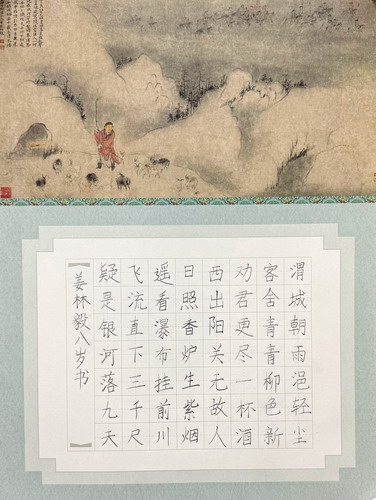 渭城朝雨浥轻尘
客舍青青柳色新
劝君更尽一杯酒
西出阳关无故人
日照香炉生紫烟
遥看瀑布挂前川
飞流直下三千尺
疑是银河落九天
【姜林毅八岁书】